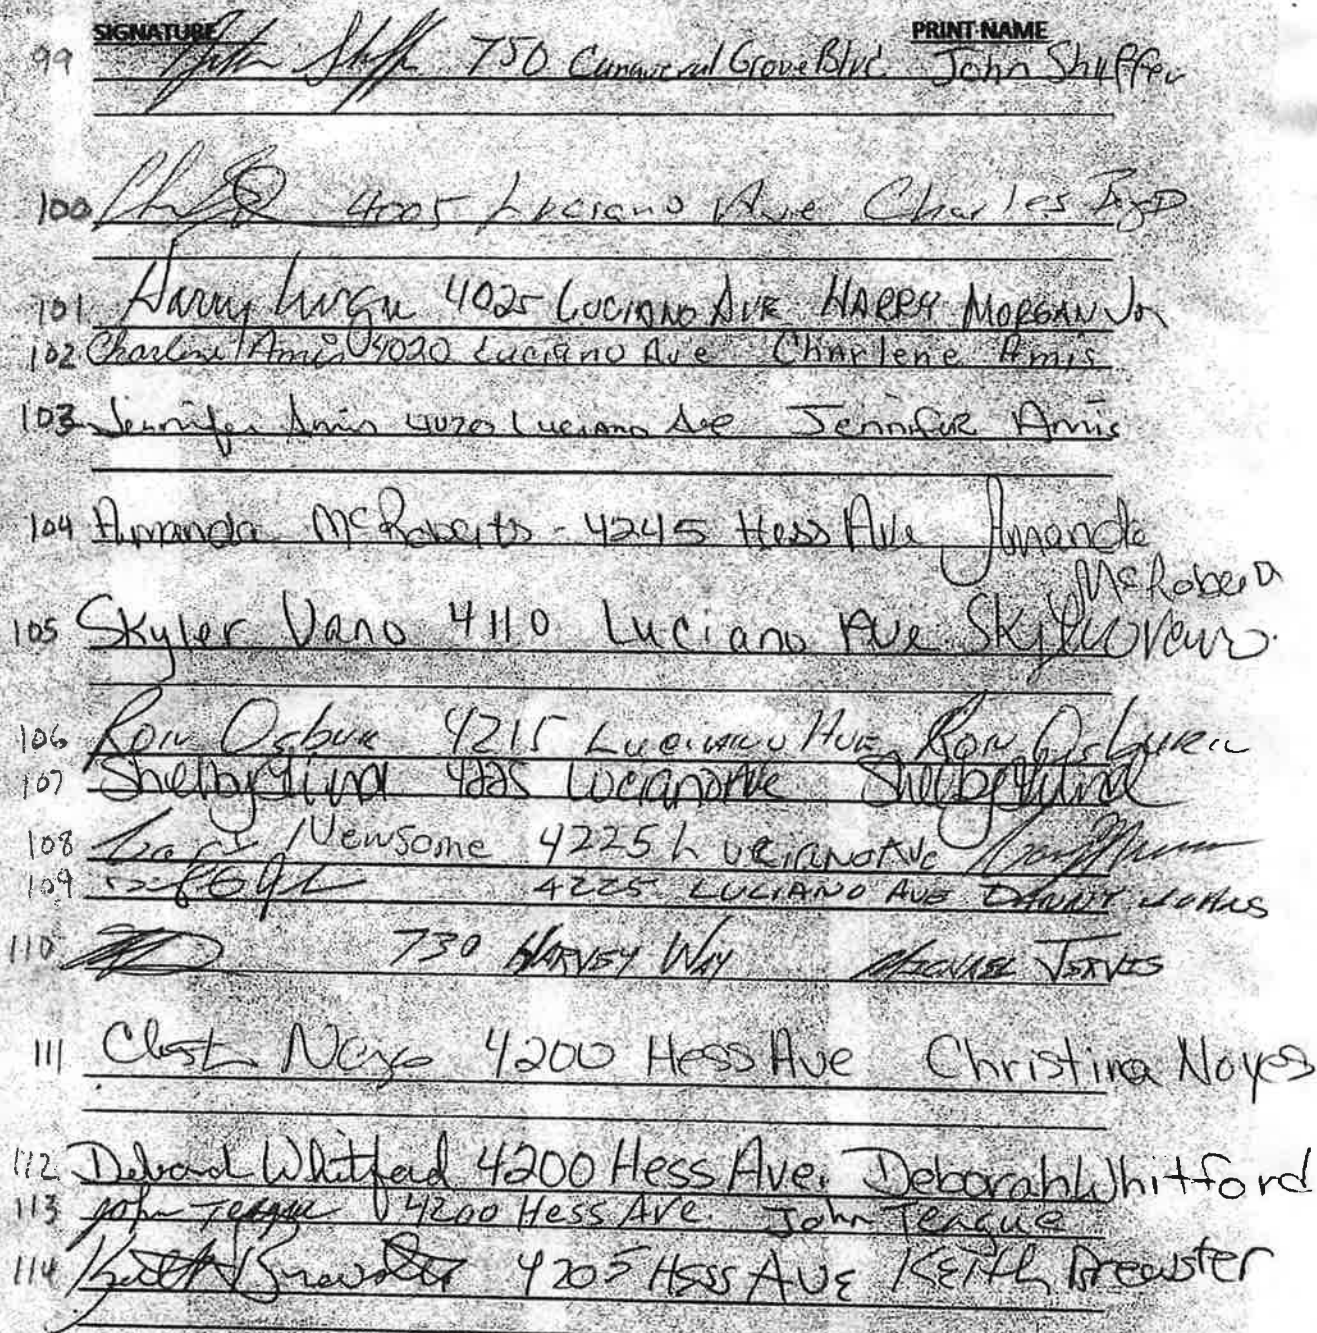 SIGNATURE PRINT NAME
99 John Shuffer 750 Canaveral Grove Blvd. John Shuffer
100 4005 Luciano Ave Charles
101 Harry 4025 LUCIANO AVE HARRY MORGAN Jr
102 Charlene Amis 4020 Luciano Ave Charlene Amis
103 Jennifer Amis 4020 Luciano Ave Jennifer Amis
104 Amanda McRoberts - 4245 Hess Ave Amanda
McRoberts
105 Skyler Vano 4110 Luciano Ave Skyler Vano
106 Ron Osburn 4215 Luciano Ave Ron Osburn
107 Shelby 4225 Luciano Ave Shelby
108 Newsome 4225 Luciano Ave
109 4225 LUCIANO AVE DANNY
110 730 HARVEY WAY MICHAEL JERVIS
111 Noyes 4200 Hess Ave Christina Noyes
112 Deborah Whitford 4200 Hess Ave. Deborah Whitford
113 John Teague 4200 Hess Ave. John Teague
114 Keith Brewster 4205 Hess AVE KEith Brewster